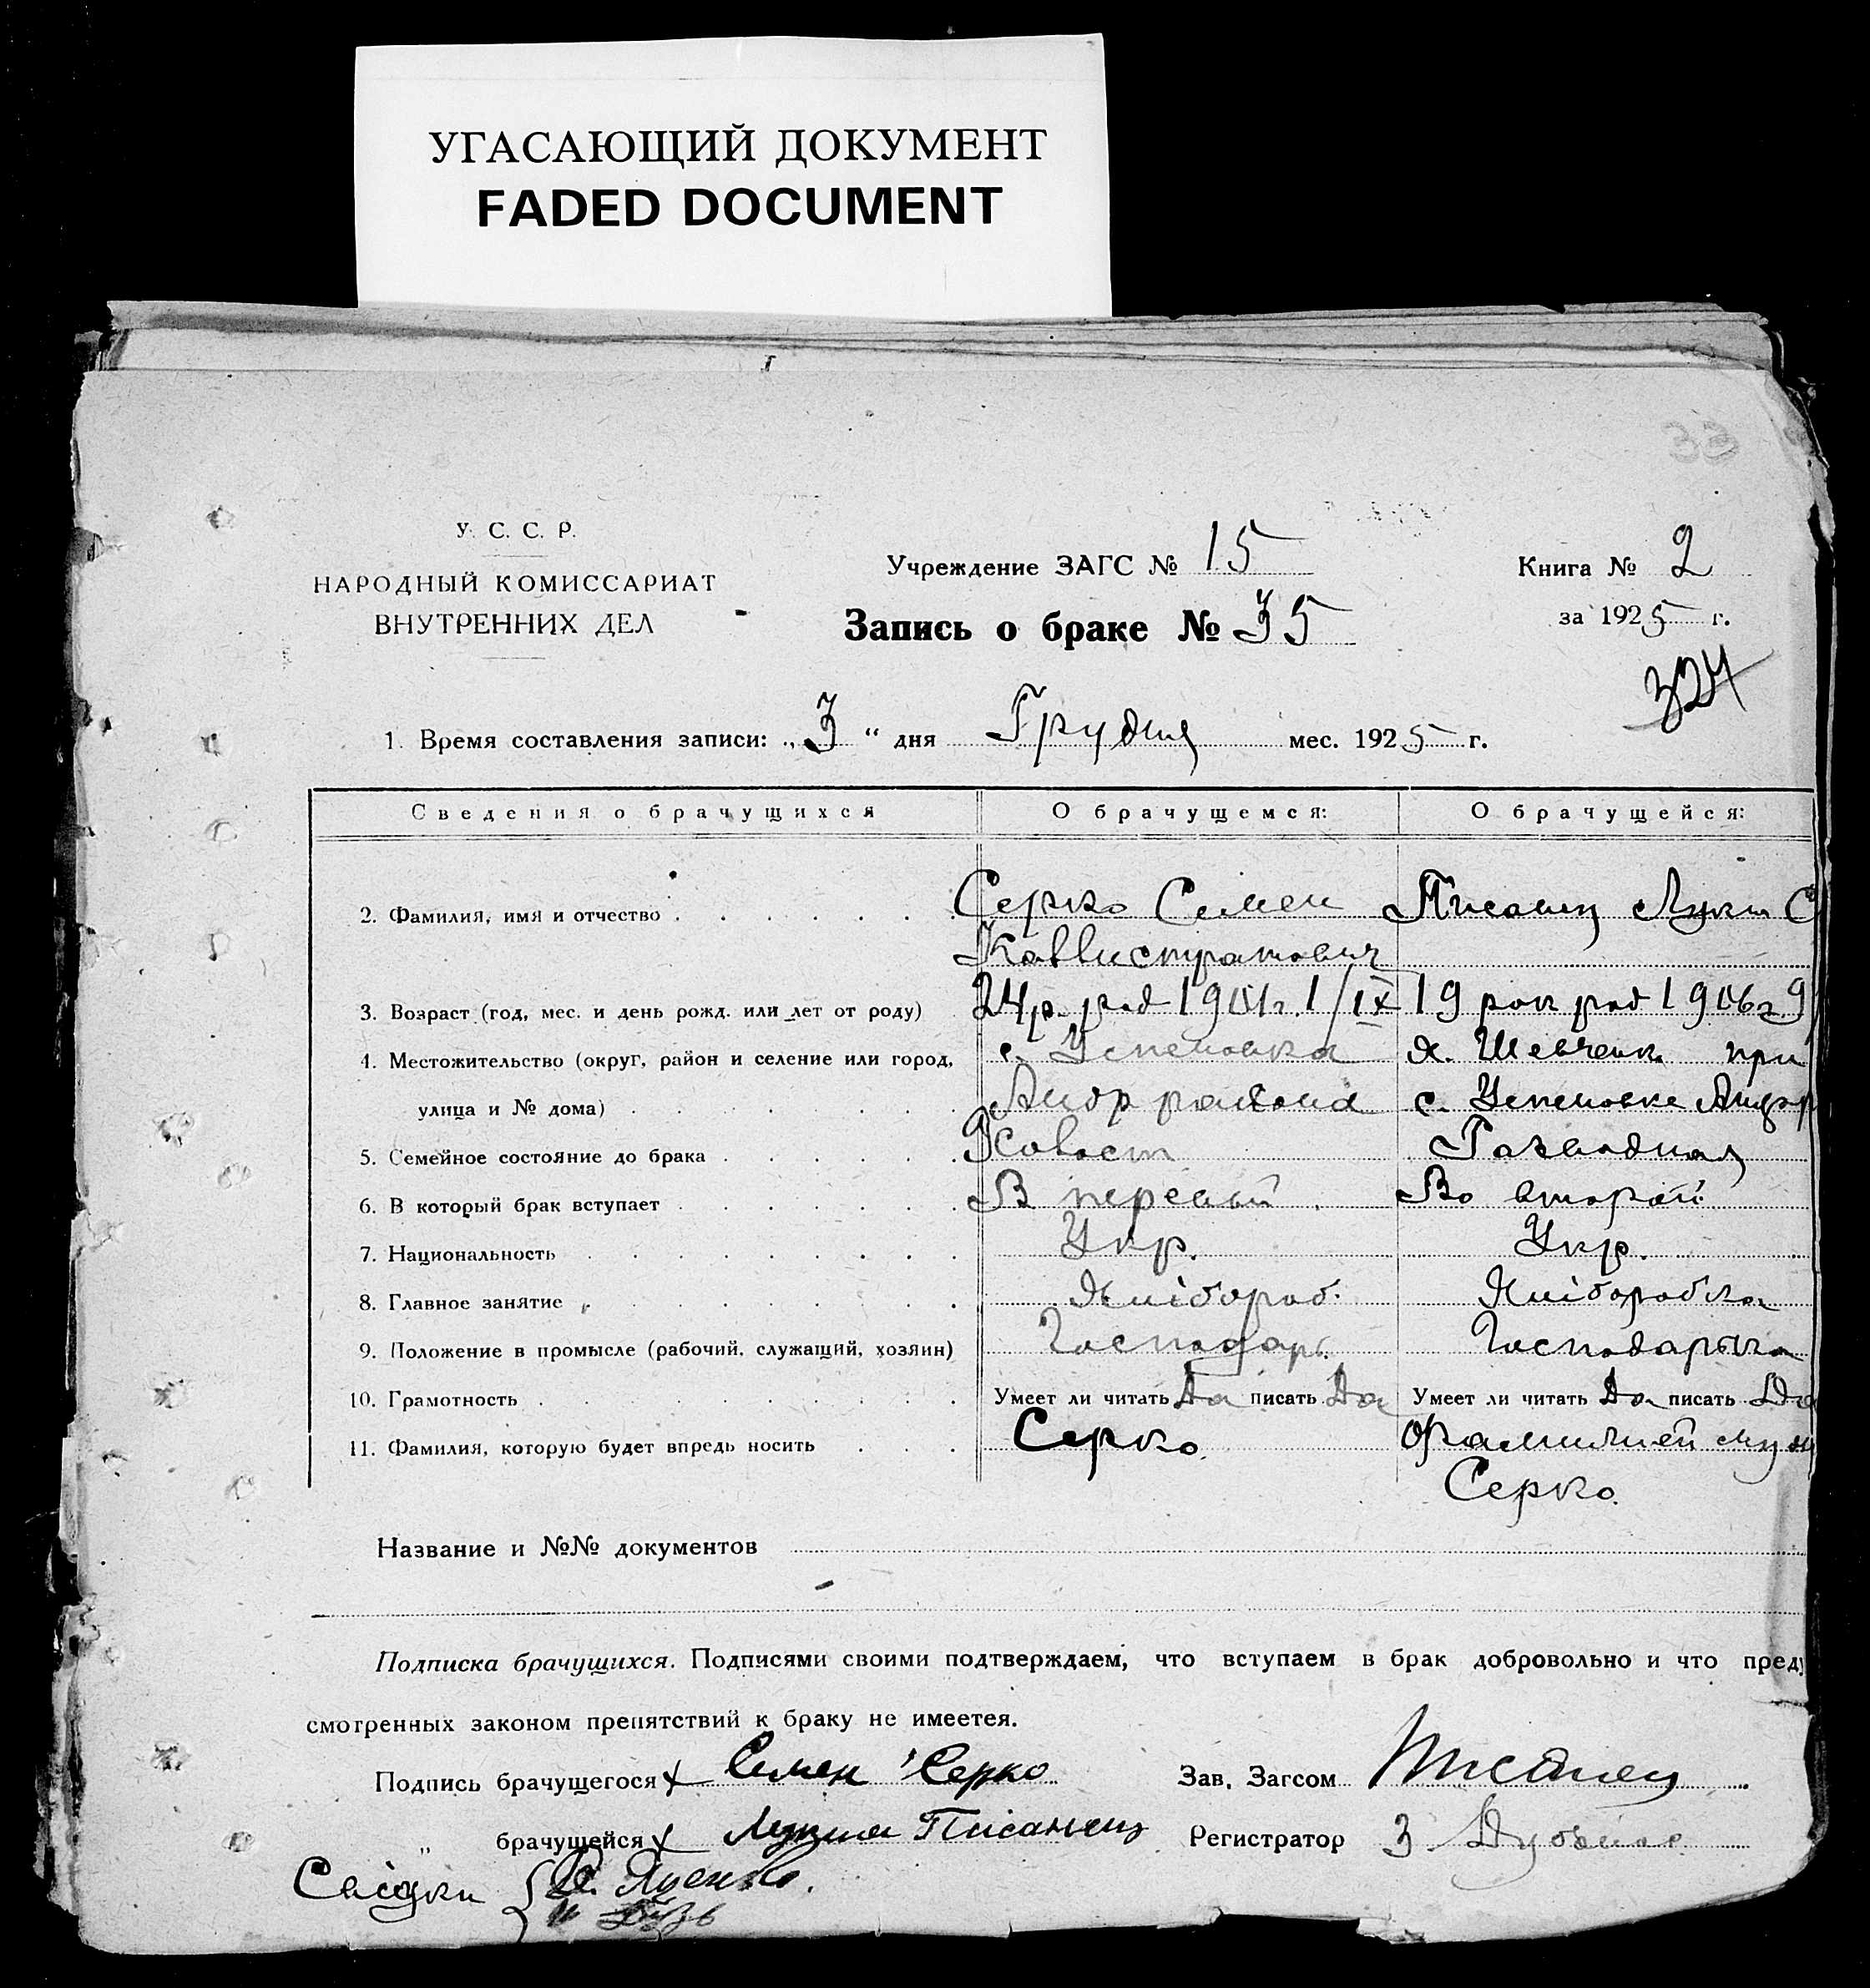 УГАСАЮЩИЙ ДОКУМЕНТ
FADED DOCUMENT
33
У. С. С. Р.
НАРОДНЫЙ КОМИССАРИАТ
ВНУТРЕННИХ ДЕЛ
Учреждение ЗАГС № 15
Запись о браке № 35
Книга № 2
за 1925 г.
324
1. Время составления записи: „3“ дня Грудня мес. 1925 г.
Сведения о брачущихся О брачущемся: О брачущейся:
2. Фамилия, имя и отчество Серко Семен Писанец Лукия С
Каллистратович
3. Возраст (год, мес. и день рожд. или лет от роду) 24 р. род 1901 г. 1/IX 19 рок род 1906 г. 9
4. Местожительство (округ, район и селение или город, с. Успеновка х. Шевченк при
улица и № дома) Андр района с. Успеновке Андр
5. Семейное состояние до брака Холост Разводная
6. В который брак вступает В первый Во второй
7. Национальность Укр. Укр.
8. Главное занятие Хлібороб. Хліборобка
9. Положение в промысле (рабочий, служащий, хозяин) Господарь. Господарька
10. Грамотность Умеет ли читать Да писать Да Умеет ли читать Да писать Да
11. Фамилия, которую будет впредь носить Серко. Фамилией муж
Серко.
Название и №№ документов
Подписка брачущихся. Подписями своими подтверждаем, что вступаем в брак добровольно и что преду
смотренных законом препятствий к браку не имеется.
Подпись брачущегося х Семен Серко Зав. Загсом Писанец
„ брачущейся х Лукия Писанец Регистратор З
Свідки Яценко.